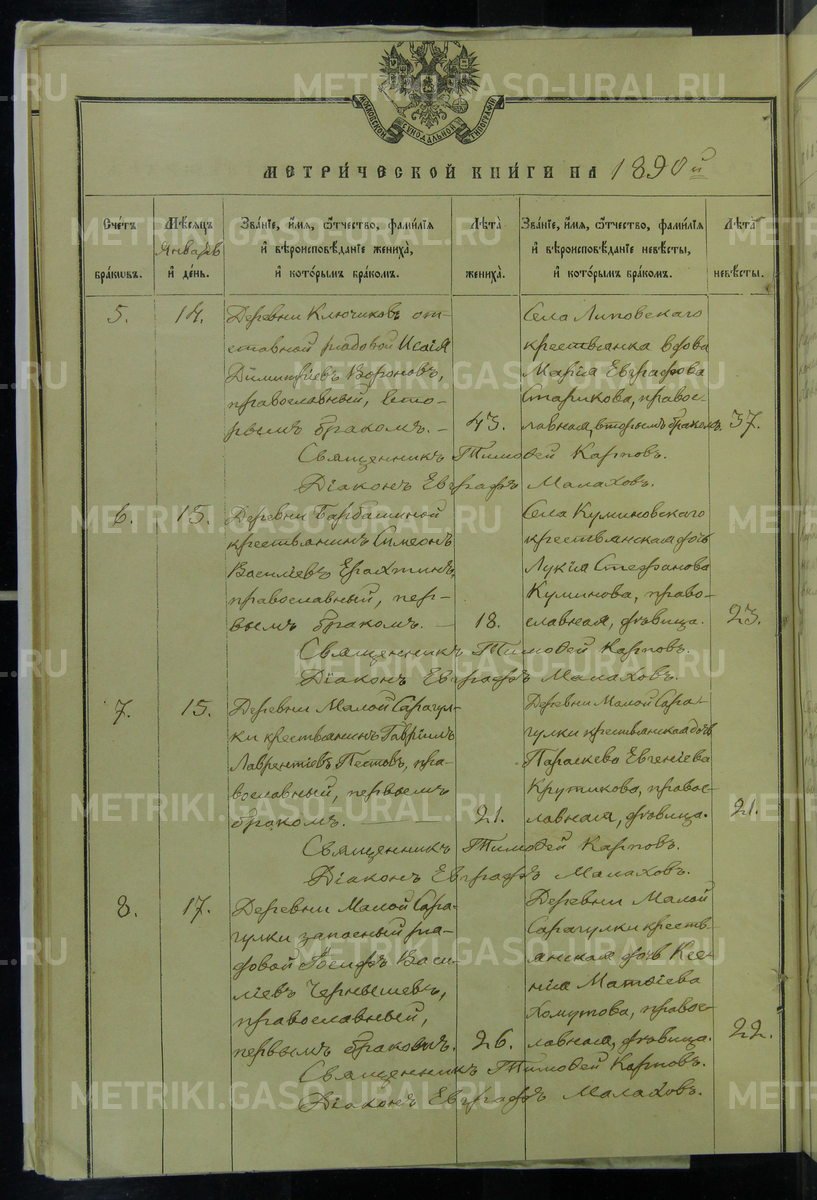 МОСКОВСКОЙ СѴНОДАЛЬНОЙ ТИПОГРАФІИ
МЕТРИ́ЧЕСКОЙ КНИ́ГИ НА 1890й
Сче́тъ бра́кѡвъ.
Мѣ́сяцъ Январь и҆ де́нь.
Зва́нїе, и҆́мя, ѻ҆́тчество, фами́лїя
и҆ вѣроисповѣ́данїе жениха̀,
и҆ кото́рымъ бра́комъ.
Лѣта̀ жениха̀.
Зва́нїе, и҆́мя, ѻ҆́тчество, фами́лїя
и҆ вѣроисповѣ́данїе невѣ́сты,
и҆ кото́рымъ бра́комъ.
Лѣта̀ невѣ́сты.
5.
14.
Деревни Ключиковъ от-
ставной рядовой Исаія
Димитріевъ Вороновъ,
православный, вто-
рымъ бракомъ. –
43.
Села Липовскаго
крестьянка вдова
Марія Евграфова
Старикова, правос-
лавная, вторымъ бракомъ.
37.
Священникъ Тимоѳей Карповъ.
Діаконъ Евграфъ Малаховъ.
6.
15.
Деревни Барбашиной
крестьянинъ Симеонъ
Василіевъ Ерахтинъ,
православный, пер-
вымъ бракомъ. –
18.
Села Куминовскаго
крестьянская дочь
Лукія Стефанова
Куминова, право-
славная, дѣвица.
23.
Священникъ Тимоѳей Карповъ.
Діаконъ Евграфъ Малаховъ.
7.
15.
Деревни Малой Сарагул-
ки крестьянинъ Гавріилъ
Лаврентіевъ Пестовъ, пра-
вославный, первымъ
бракомъ.
21.
Деревни Малой Сара-
гулки крестьянская дочь
Параскева Евгеніева
Крутикова, правос-
лавная, дѣвица.
21.
Священникъ Тимоѳей Карповъ.
Діаконъ Евграфъ Малаховъ.
8.
17.
Деревни Малой Сара-
гулки запасный ря-
довой Іосифъ Васи-
ліевъ Чернышевъ,
православный,
первымъ бракомъ.
26.
Деревни Малой
Сарагулки кресть-
янская дочь Ксе-
нія Матѳіева
Хомутова, правос-
лавная, дѣвица.
22.
Священникъ Тимоѳей Карповъ.
Діаконъ Евграфъ Малаховъ.
METRIKI.GASO-URAL.RU